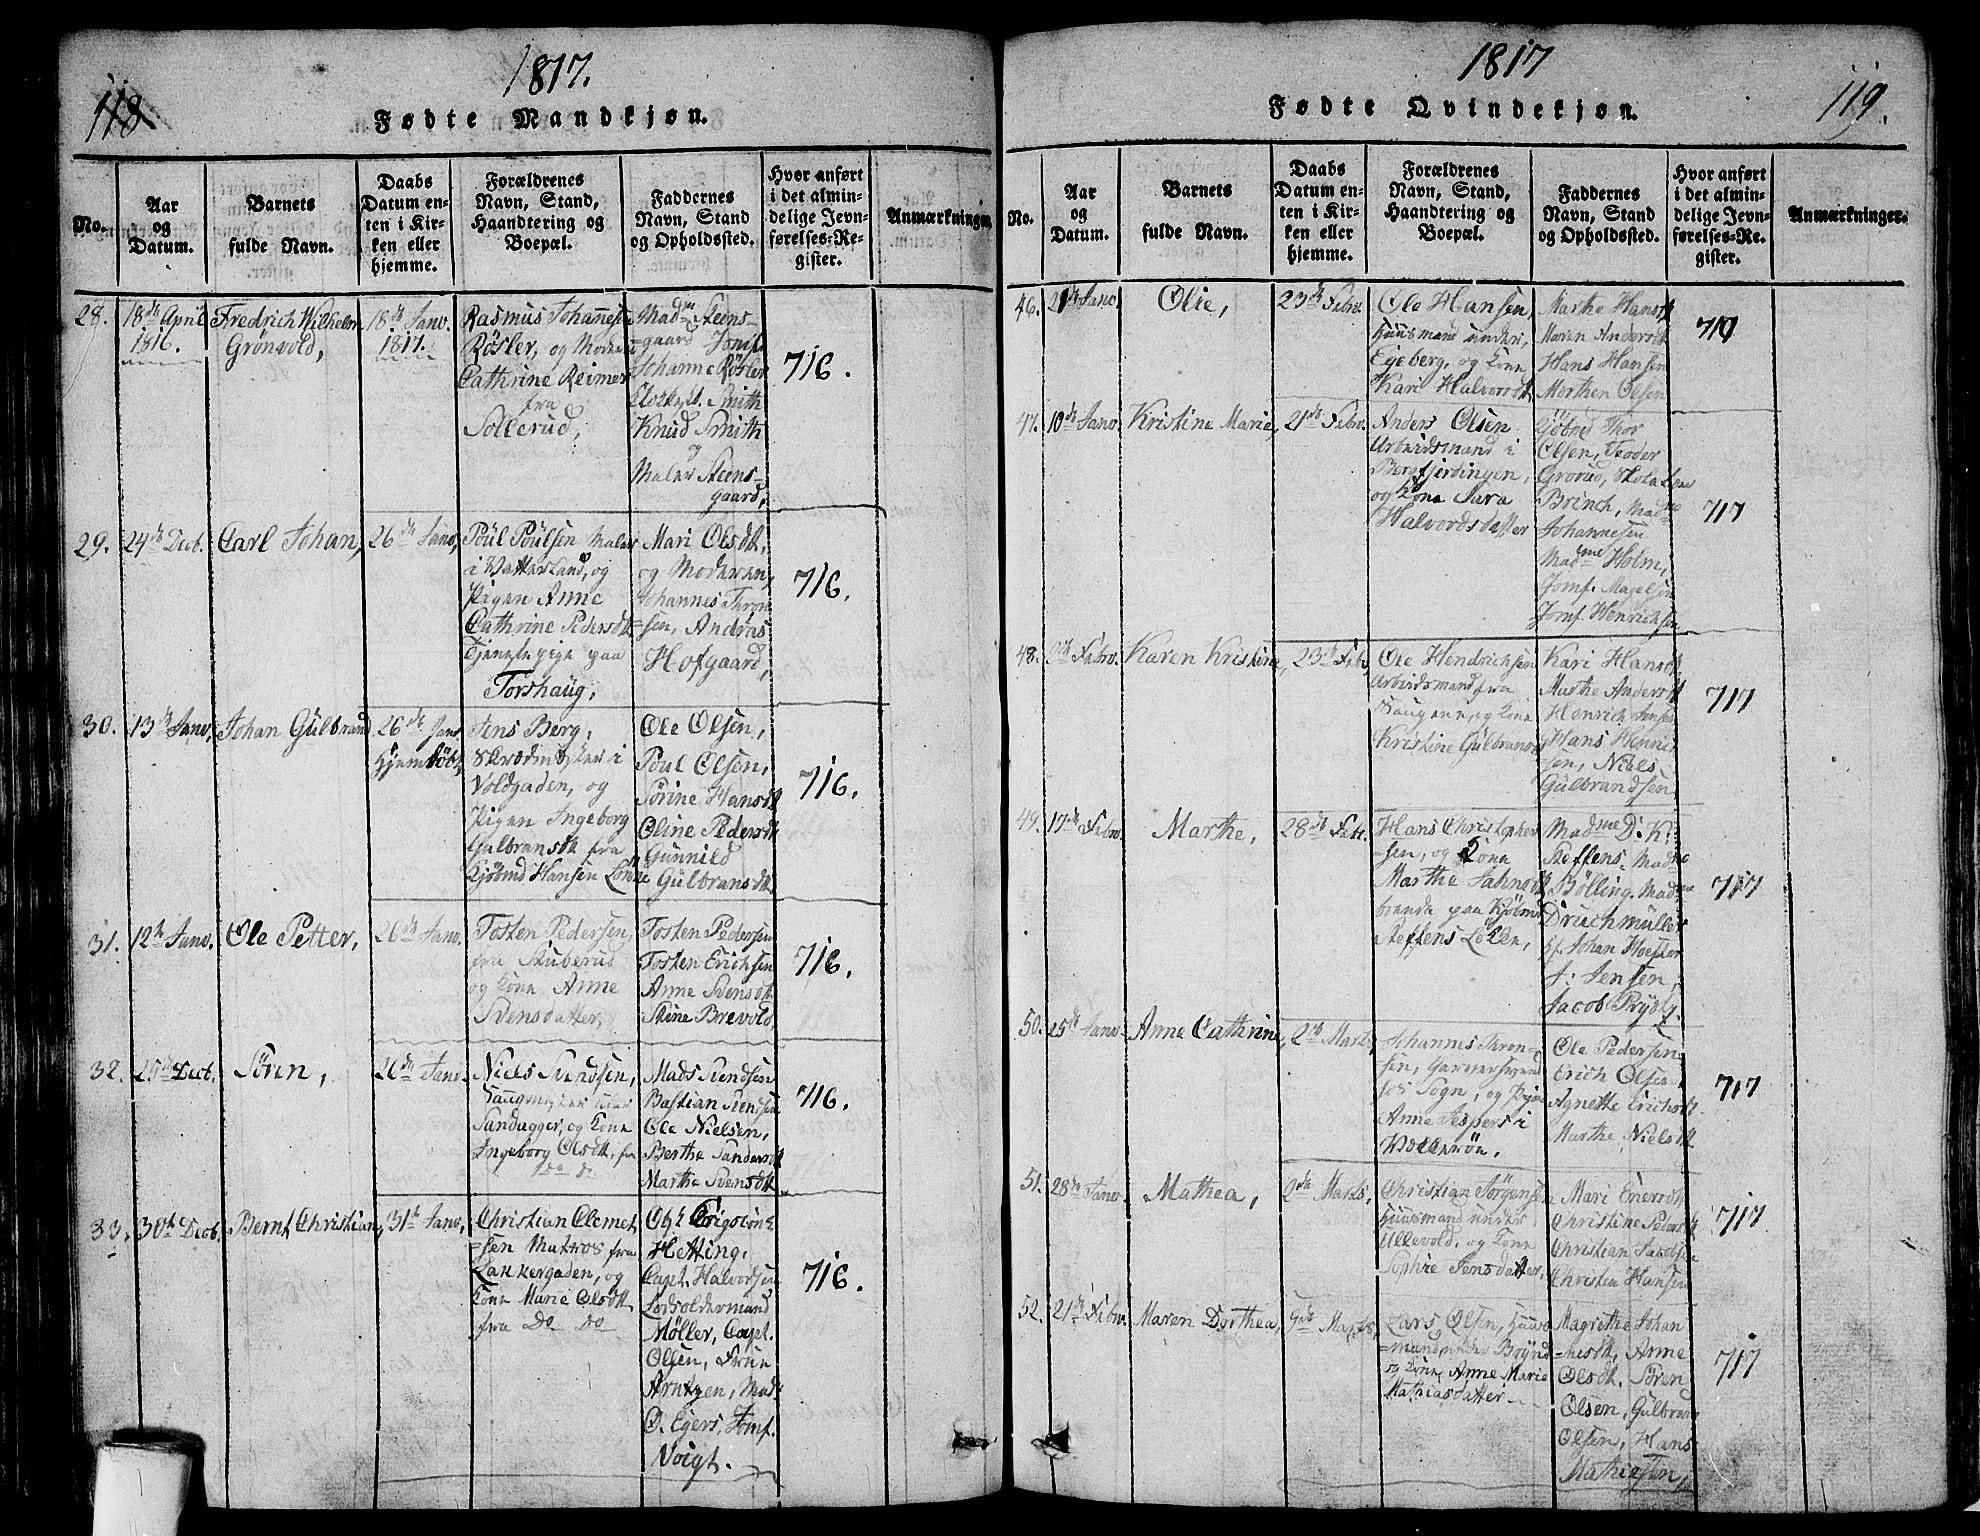 118
1817.
Fødte Mandkjøn.
No.
Aar
og
Datum.
Barnets
fulde Navn.
Daabs
Datum en-
ten i Kir-
ken eller
hjemme.
Forældrenes
Navn, Stand,
Haandtering og
Boepæl.
Faddernes
Navn, Stand
og Opholdssted.
Hvor anført
i det almin-
delige Jevn-
førelses-Re-
gister.
Anmærkninger.
28.
18de April
1816.
Fredrich Wilhelm
Grönvold,
18de Janv.
1817.
Rasmus Johannesen
Røsler, og Moderen
Cathrine Reimer
fra
Sollerud,
Madm Steens-
gaard Jomf.
Johanne Røsler
Smith
Knud Smith
og
Maler Steens-
gaard,
716.
29.
24de Decb.
Carl Johan,
26de Janv,
Poul Poulsen Maler
i Vatterland, og
Pigen Anne
Cathrine Pedersdtr
Tjenestepige paa
Torshaug,
Mari Olsdtr,
og Moderen,
Johannes Thron
=sen, Andreas
Hofgaard,
716.
30.
13de Janv,
Johan Gulbrand
26de Janv
Hjemdöbt,
Jens Berg,
Skrædersker i
Voldgaden, og
Pigen Ingeborg
Gulbransdtr fra
Kjöbmd Hansen
Ole Olsen,
Poul Olsen,
Sörine Hansdtr
Oline Pedersdtr
Gunnild
Gulbransdtr
716.
31.
12te Janv.
Ole Petter,
26de Janv.
Tosten Pedersen,
fra Skuberud
og Kone Anne
Svensdatter,
Tosten Pedersen
Tosten Erichsen
Anne Svensdtr
Stine Brevold,
716.
32.
25de Decb.
Sören,
26de Janv
Niels Svendsen,
Saugmester
Sandugger, og Kone
Ingeborg Olsdtr, fra
Do do
Mads Svendsen
Bastian Svendsen
Ole Nielsen,
Berthe Sandersdtr
Marthe Svensdtr
716.
33.
30te Decb.
Bernt Christian,
31te Janv,
Christian Clemet
=sen Matros fra
Lakkergaden, og
Kone Marie Olsdtr
fra Do Do
Hetting,
Capt. Halvorsen
Lodsoldermand
Møller, Capt.
Olsen, Frue
Arntzen, Mad.
O. Egers, Jomf.
Voigt.
716.
1817
119.
Fødte Qvindekjøn.
No.
Aar
og
Datum.
Barnets
fulde Navn.
Daabs
Datum en-
ten i Kir-
ken eller
hjemme.
Forældrenes
Navn, Stand,
Haandtering og
Boepæl.
Faddernes
Navn, Stand
og Opholdssted.
Hvor anført
i det almin-
delige Jevn-
førelses-Re-
gister.
Anmærkninger.
46.
Janv.
Olie,
23de Febr.
Ole Hansen,
Huusmand under,
Egeberg, og Kone
Kari Halvorsdtr
Marthe Hansdtr
Maren Andersdtr
Hans Hansen
Morthen Olsen
717
47.
10de Janv.
Kristine Marie,
21de Febr.
Anders Olsen
Arbeidsmand i
Bergfjerdingen,
og Kone Sara
Halvordsdatter
Göbmd Thor
Olsen, Feoder
Grorud, Skolelærer
Brinch, Madme
Johannesen
Madme Holm,
Jomf. Magelsen
Jomf. Henrichsen
717
48.
Febr.
Karen Kristine,
23de Febr,
Ole Hendrichsen
Arbeidsmand fra
Saugene, og Kone
Kristine Gulbransd
Kari Hansdtr
Marthe Andersdtr
Henrich Jensen
Hans Henrich
sen, Niels
Gulbrandsen
717
49.
17de Febr.
Marthe,
28de Febr.
Hans Christopher
=sen, og Kone
Marthe
boende paa Kjöbmd
Steffens Lökken,
Madme D. K.
Steffens, Madme
Bölling, Madme
Druchmüller
Johan
J: Jensen,
Jacob Prydtz.
717
50.
25de Janv.
Anne Cathrine,
2de Marts,
Johannes Thron-
sen,
Sogn, og Pigen
Anne Jespers i
Ole Pedersen
Erich Olsen,
Agnethe Erichsdtr.
Marthe Nielsdtr
717
51.
28de Janv
Mathea,
2de Marts,
Christian Jörgensen
Huusmand under
Ullevold, og Kone
Sophie Jensdatter,
Mari Enersdtr
Christine Pedersdtr
Christian Jacobsen
Christen Hansen
717
52.
21de Febr.
Maren Dorthea,
9de Marts,
Lars Olsen, Huus
=mand under Brynd
og Kone Anne Marie
Mathiasdatter
Magrethe Johan
=nesdtr, Anne
Olsdtr. Sören
Olsen, Gulbran
Olsen, Hans
Mathiesen,
717